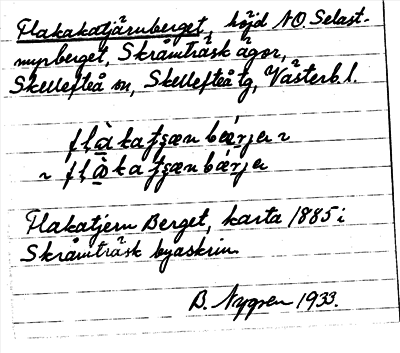 Flakakatjärnberget, höjd NO. Selast-
myrberget, Skråmträsk ägor,
Skellefteå sn, Skellefteå tg, Västerb. l.
Flakatjern Berget, karta 1885 i
Skråmträsk byaskrin.
B. Nygren 1933.